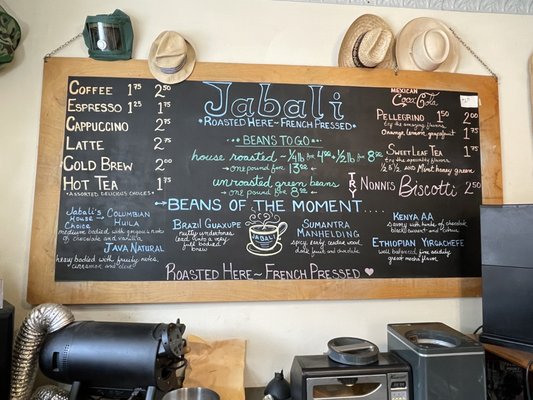 Coffee 1.75 2.00
Espresso 1.25 1.75
Cappuccino 2.75
Latte 2.75
Cold Brew 2.00
Hot Tea 1.75
Assorted Delicious Choices
Jabali
Roasted Here~French Pressed
Beans To Go
house roasted ~ 1/4 lb for 4.00 + 1/2 lb for 8.00
one pound for 13.00
unroasted green beans
one pound for 8.00
Mexican
Coca Cola 2.00
Pellegrino 1.50
try the amazing flavors
Orange, lemon, grapefruit 1.75
Sweet Leaf Tea 1.75
try the specialty flavors
1/2 & 1/2 and Mint honey green
Try Nonni's Biscotti 2.50
Beans of the Moment....
Jabali's House Choice
Columbian Huila
medium bodied with grapes nuts
of chocolate and vanilla
Java Natural
heavy bodied with fruity notes,
cinnamon and clove
Brazil Guaxupe
nutty undertones
lead into a very
full bodied
brew
Jabali
Sumantra
Manhelding
spicy, earthy, cedar wood
dark fruit and chocolate
Kenya AA
savory with hints of chocolate
blackcurrant and citrus
Ethiopian Yirgacheffe
well balanced, fine acidity
great mocha flavor
Roasted Here~French Pressed